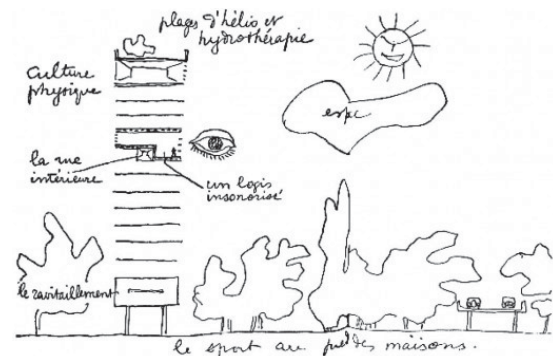 plages d'hélio et
hydrothérapie
Culture
physique
la rue
intérieure
un logis
insonorisé
le ravitaillement
le sport au pied des maisons.